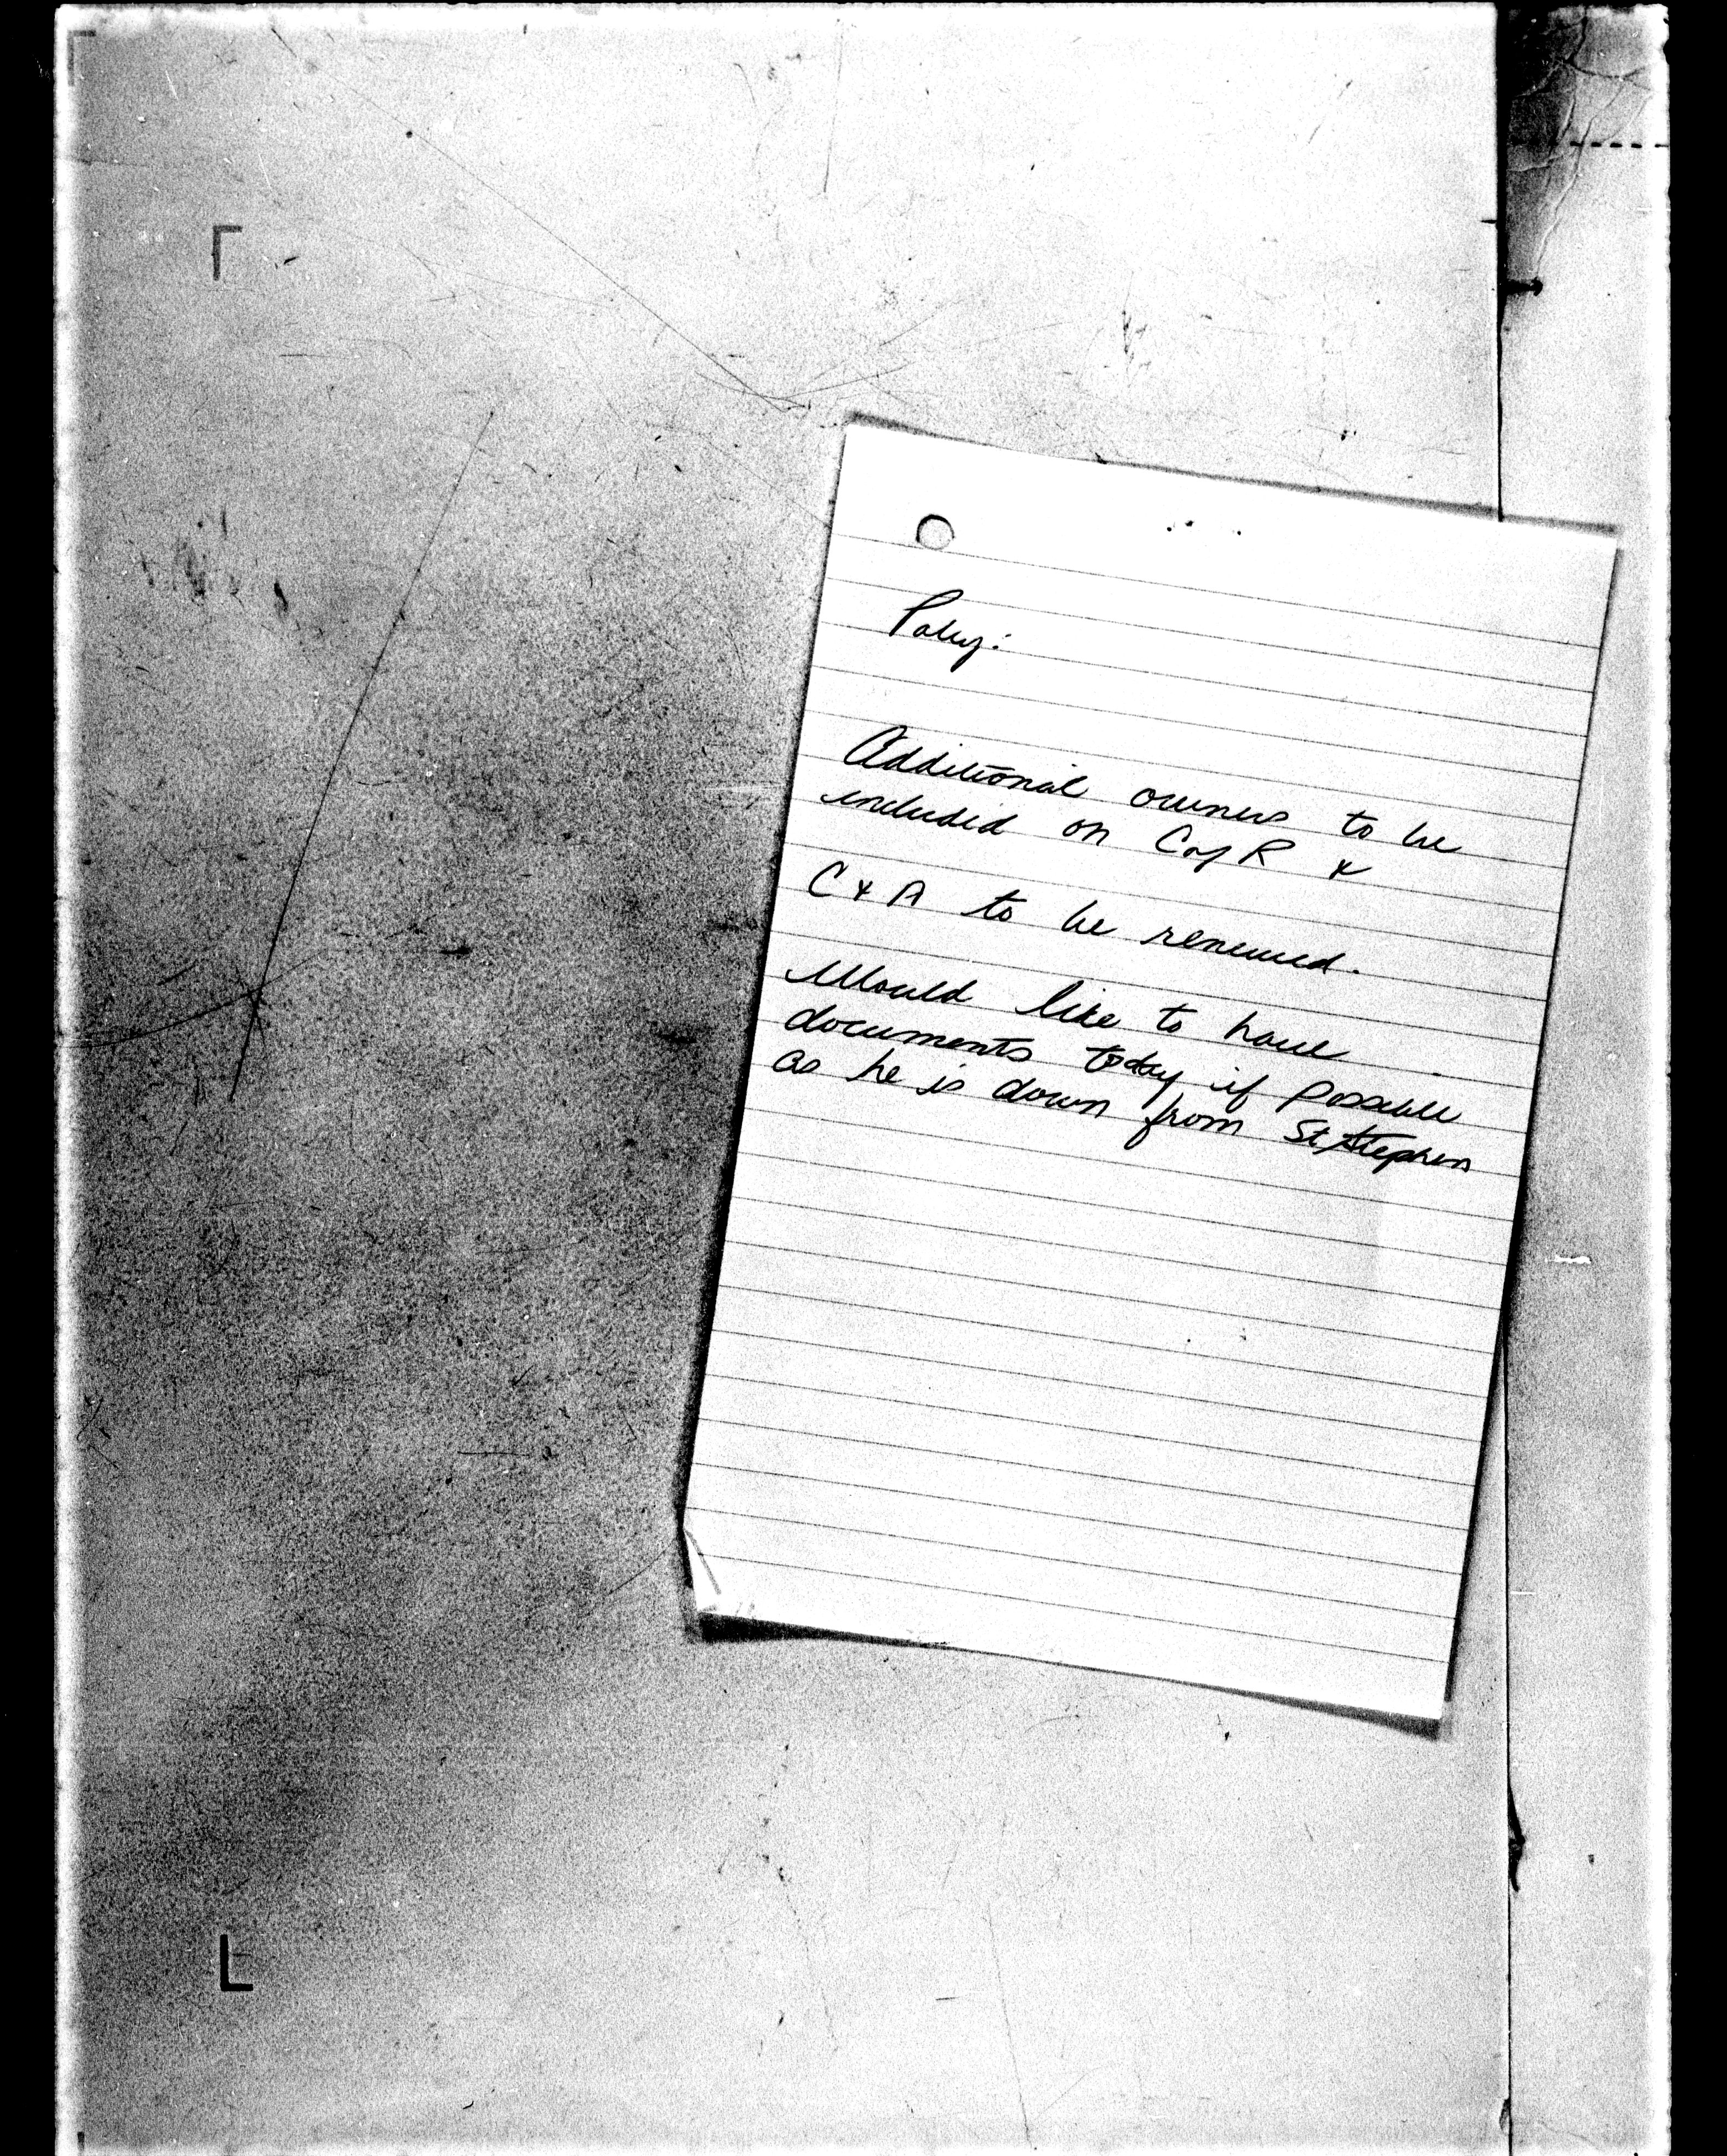 Additional owners to be
included on C of R &
C & A to be renewed.
Would like to have
documents today if possible
as he is down from St Stephen